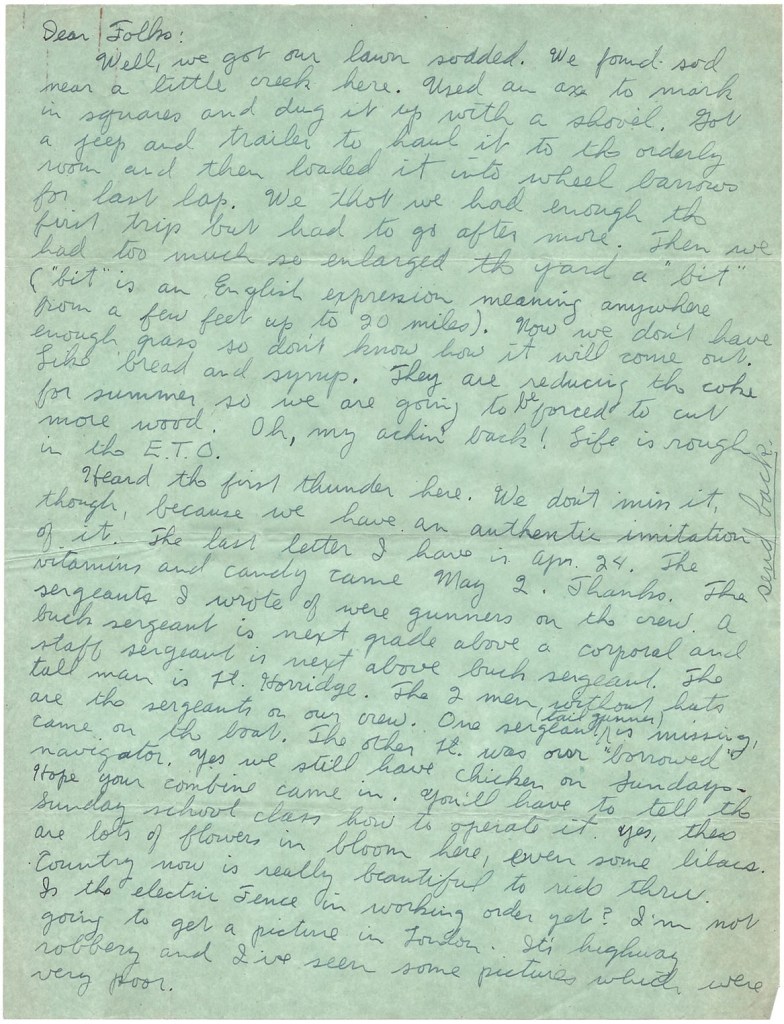 Dear Folks:
Well, we got our lawn sodded. We found sod
near a little creek here. Used an axe to mark
in squares and dug it up with a shovel. Got
a jeep and trailer to haul it to the orderly
room and then loaded it into wheel barrows
for last lap. We thot we had enough the
first trip but had to go after more. Then we
had too much so enlarged the yard a "bit"
("bit" is an English expression meaning anywhere
from a few feet up to 20 miles). Now we don't have
enough grass so don't know how it will come out.
Like bread and syrup. They are reducing the coke
for summer so we are going to be forced to cut
more wood. Oh, my achin' back! Life is rough
in the E.T.O.
Heard the first thunder here. We don't miss it,
though, because we have an authentic imitation
of it. The last letter I have is Apr. 24. The
vitamins and candy came May 2. Thanks. The
sergeants I wrote of were gunners on the crew. A
buck sergeant is next grade above a corporal and
staff sergeant is next above buck sergeant. The
tall man is Lt. Horridge. The 2 men without hats
are the sergeants on our crew. One sergeant (tail gunner) is missing,
came on the boat. The other Lt. was our "borrowed"
navigator. Yes we still have chicken on Sundays.
Hope your combine came in. You'll have to tell the
Sunday school class how to operate it. Yes, there
are lots of flowers in bloom here, even some lilacs.
Country now is really beautiful to ride thru.
Is the electric Fence in working order yet? I'm not
going to get a picture in London. It's highway
robbery and I've seen some pictures which were
very poor.
send back